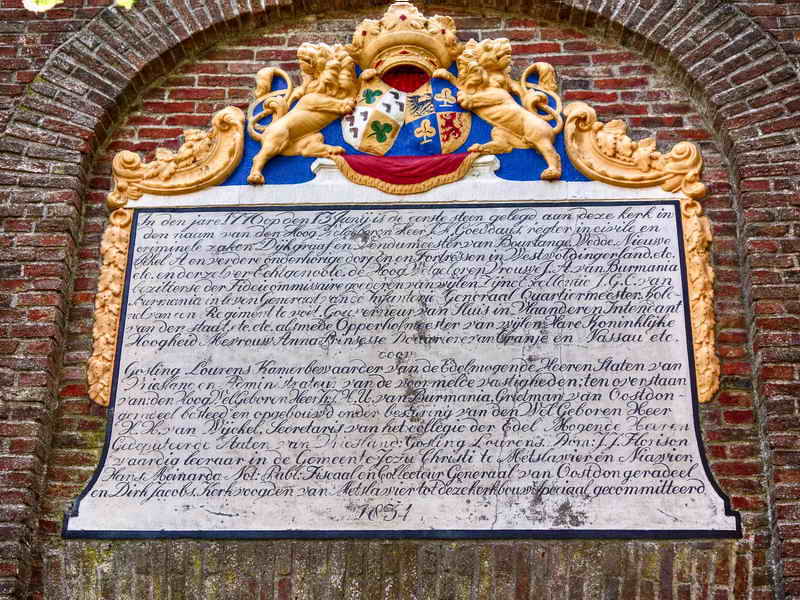 In den jare 1770 op den 15 Junij is de eerste steen gelegd aan deze kerk in
den naam van den Hoog Welgeboren Heer J. A. Goeddaut regter in civile en
criminele zaken Dijkgraaf en Vendumeester van Bourtange, Wedde, Nieuwe
A en verdere onderhorige dorpen en Fortressen in Westwoldingerland, etc.
etc. en derzelver Echtgenoote de Hoog Welgeboren Vrouwe J. A. van Burmania
bezitterse der Fideicommissaire goederen van wijlen Zijne Excellentie J. G. C. van
Burmania in leven Generaal van de Infanterie Generaal Quartiermeester, Colo-
van een Regiment te voet Gouverneur van Sluis in Vlaanderen Intendant
van der staat, etc. etc. alsmede Opperhofmeester van wijlen Hare Koninklijke
Hoogheid Mevrouw Anna Prinsesse Douariere van Oranje en Nassau etc.
door
Gosling Lourens Kamerbewaarder van de Edelmogende Heeren Staten van
Vriesland en van de voormelde vastigheden; ten overstaan
van den Hoog Welgeboren Heer H. U. van Burmania, Grietman van Oostdon-
geradeel besteed en opgebouwd onder bestiering van den Wel Geboren Heer
H. H. van Wijckel, Secretaris van het collegie der Edel Mogende Heeren
Gedeputeerde Staten van Vriesland; Gosling Lourens. Dom: J. J. Florison
vaardig leeraar in de Gemeente Jezu Christi te Metslawier en Niawier,
Hans Meinarda Not: Publ: Fiscaal en Collecteur Generaal van Oostdongeradeel
en Dirk Jacobs, Kerkvoogden van Metslawier tot deze kerkbouw speciaal gecommitteerd
1831